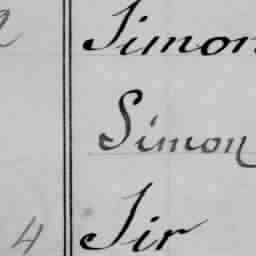 Simon
Simon
4 Sir